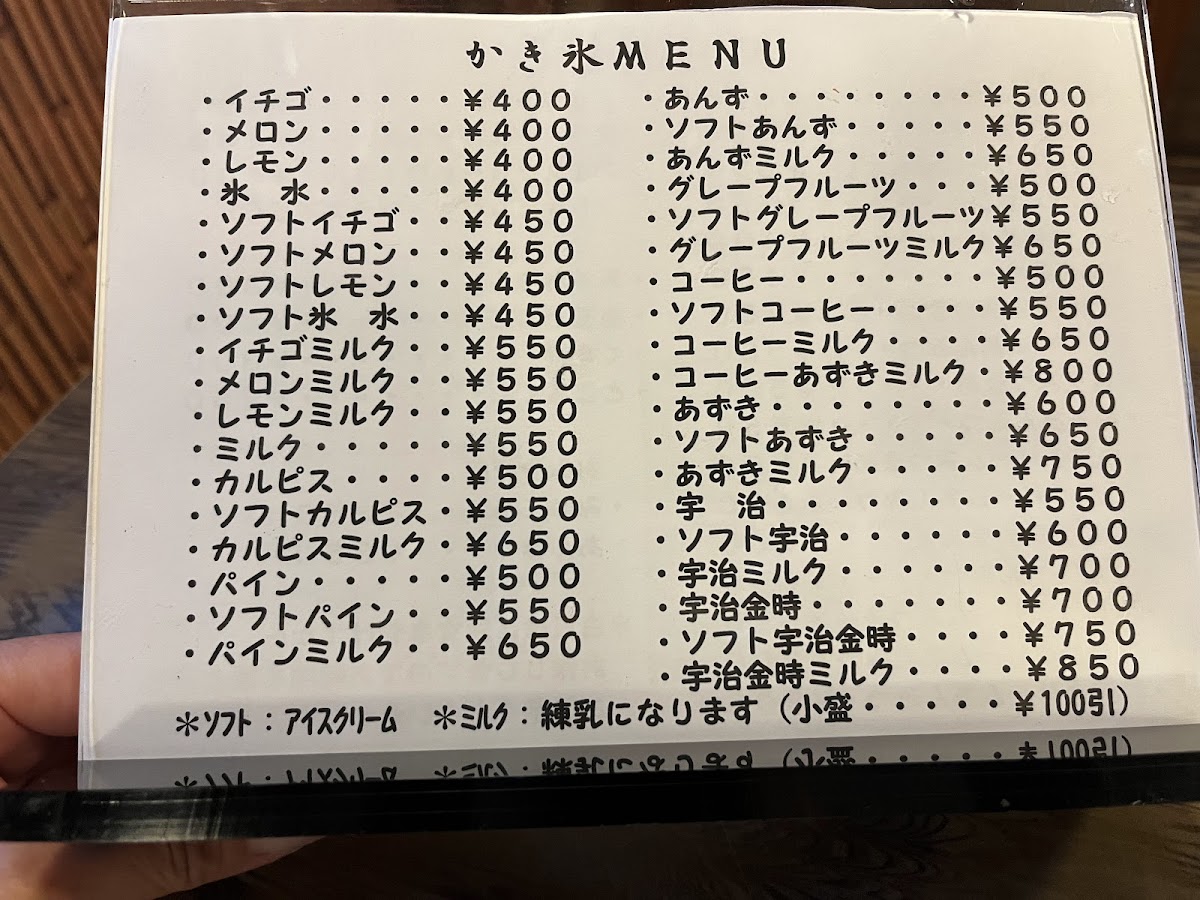 かき氷MENU
・イチゴ・・・・・¥400
・メロン・・・・・¥400
・レモン・・・・・¥400
・氷　水・・・・・¥400
・ソフトイチゴ・・¥450
・ソフトメロン・・¥450
・ソフトレモン・・¥450
・ソフト氷　水・・¥450
・イチゴミルク・・¥550
・メロンミルク・・¥550
・レモンミルク・・¥550
・ミルク・・・・・¥550
・カルピス・・・・¥500
・ソフトカルピス・¥550
・カルピスミルク・¥650
・パイン・・・・・¥500
・ソフトパイン・・¥550
・パインミルク・・¥650
・あんず・・・・・・・・¥500
・ソフトあんず・・・・・¥550
・あんずミルク・・・・・¥650
・グレープフルーツ・・・¥500
・ソフトグレープフルーツ¥550
・グレープフルーツミルク¥650
・コーヒー・・・・・・・¥500
・ソフトコーヒー・・・・¥550
・コーヒーミルク・・・・¥650
・コーヒーあずきミルク・¥800
・あずき・・・・・・・・¥600
・ソフトあずき・・・・・¥650
・あずきミルク・・・・・¥750
・宇　治・・・・・・・・¥550
・ソフト宇治・・・・・・¥600
・宇治ミルク・・・・・・¥700
・宇治金時・・・・・・・¥700
・ソフト宇治金時・・・・¥750
・宇治金時ミルク・・・・¥850
＊ソフト：アイスクリーム　＊ミルク：練乳になります（小盛・・・・・¥100引）